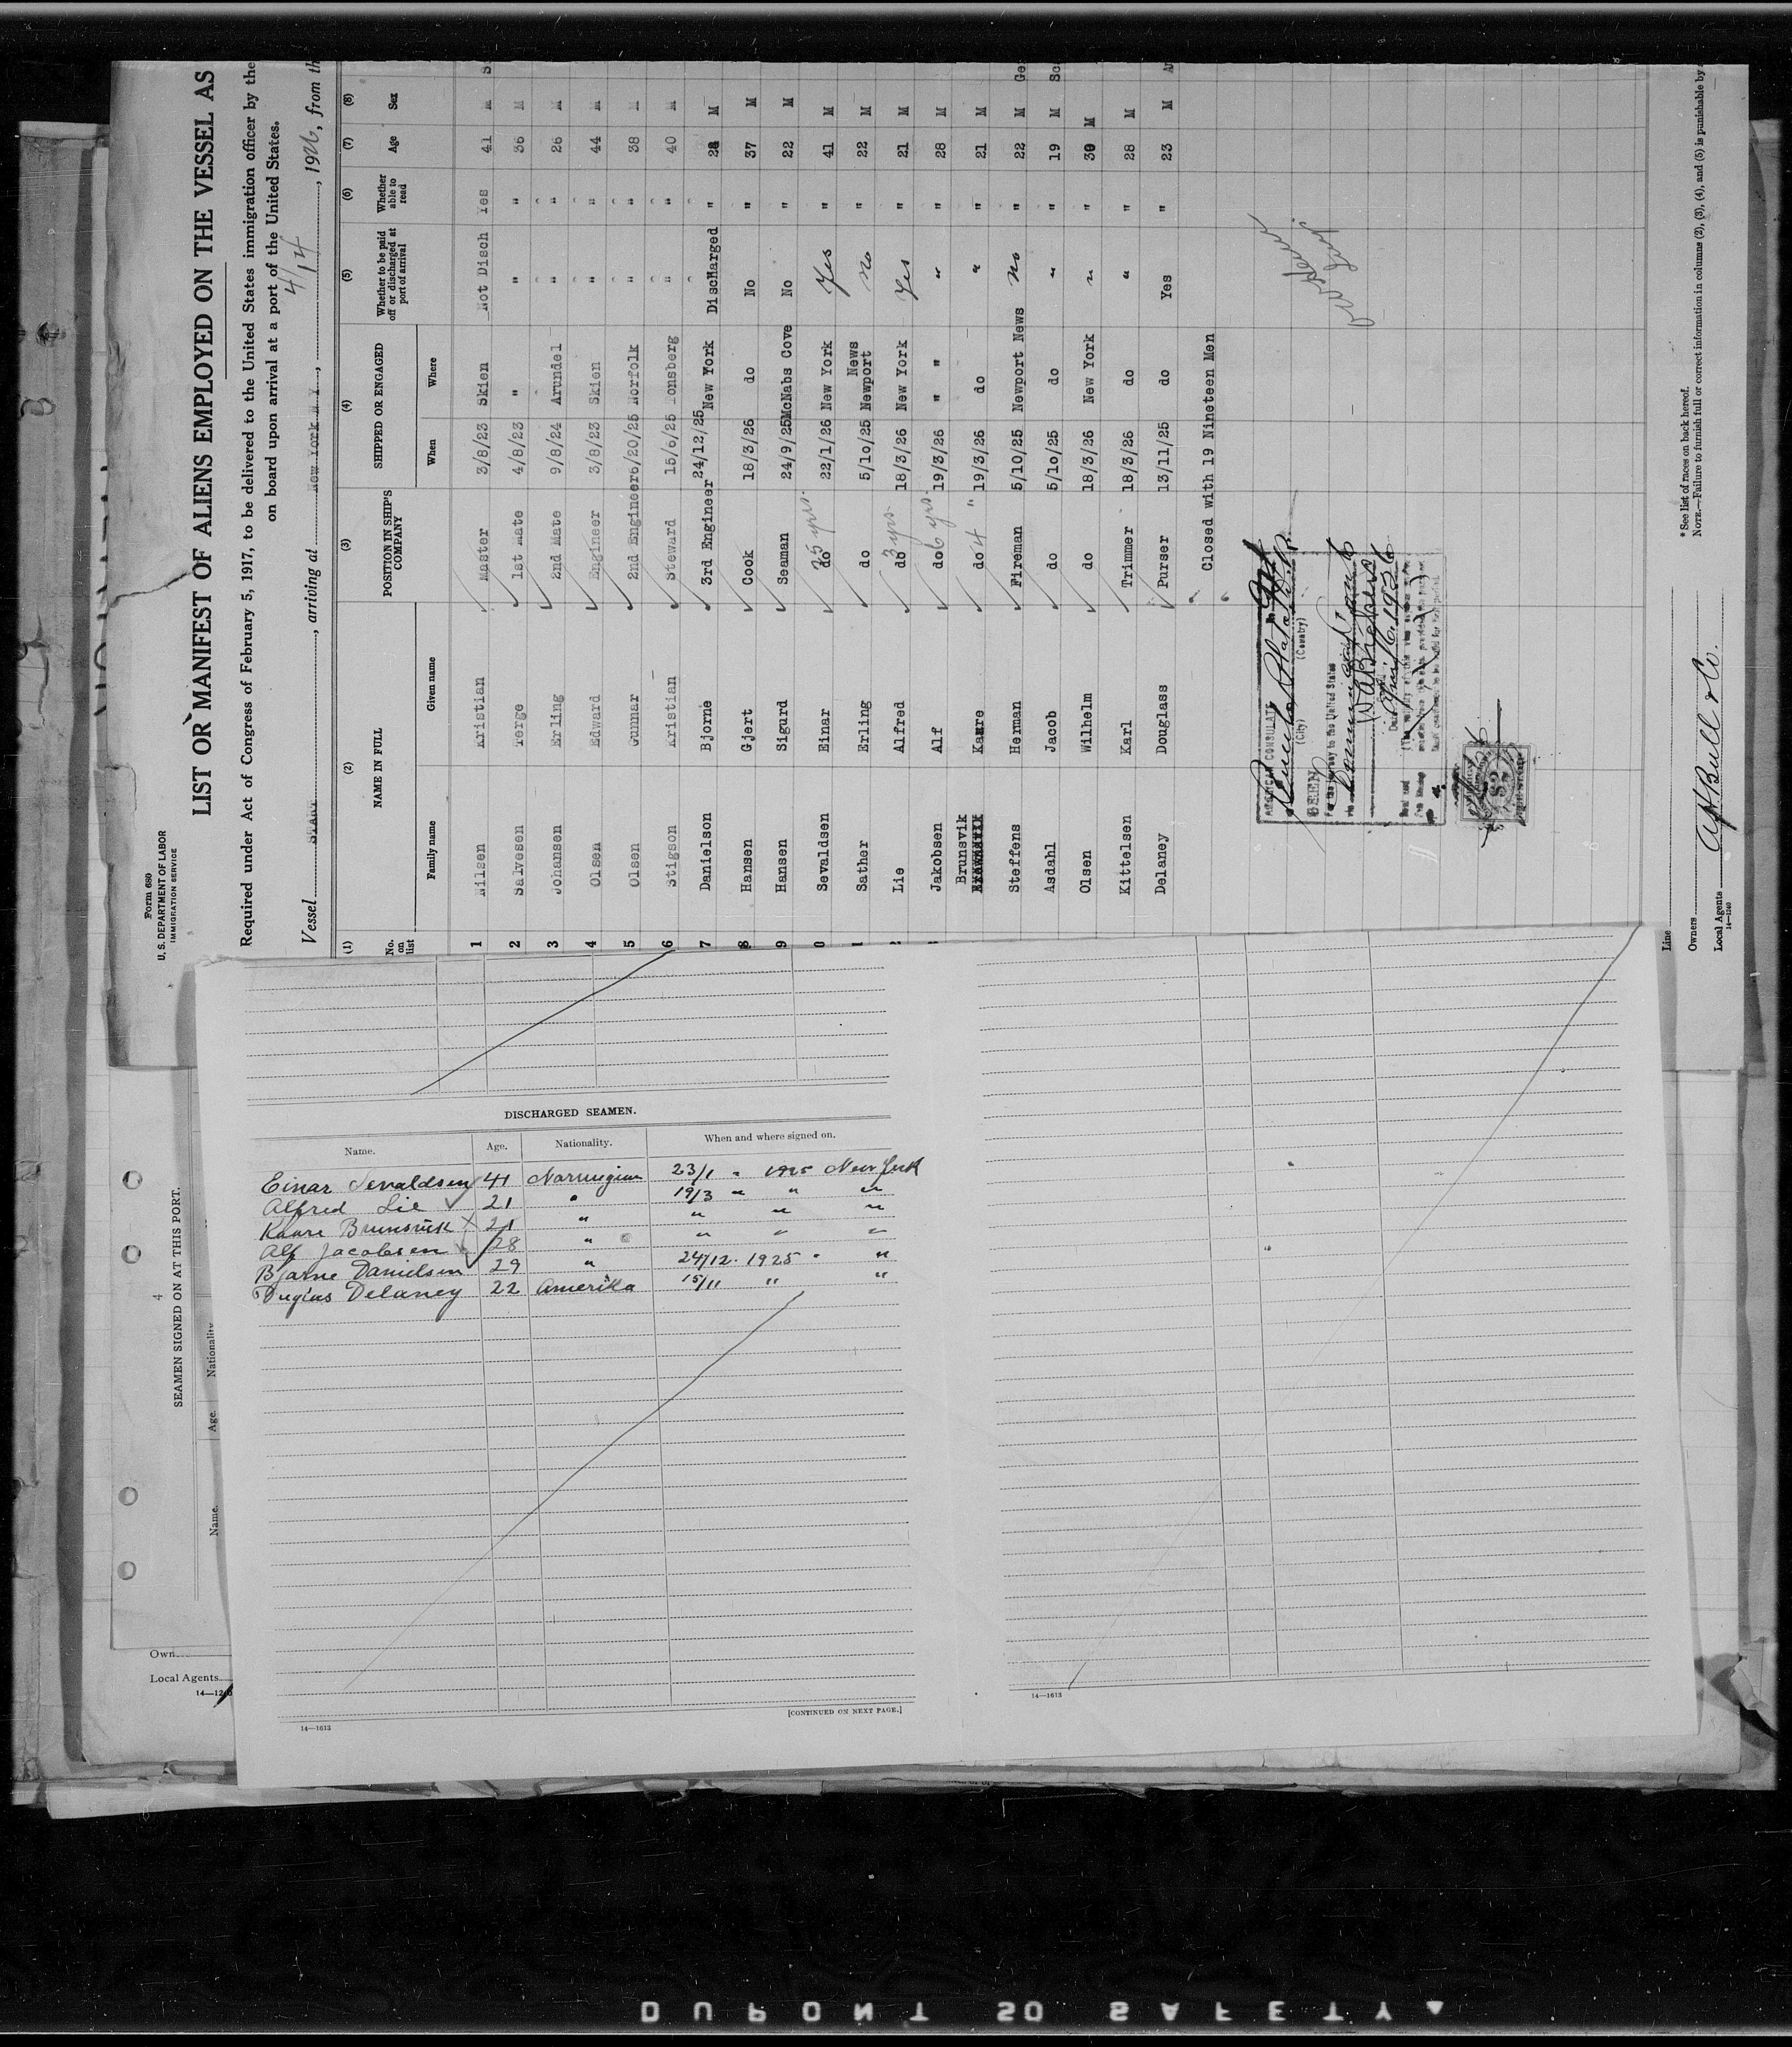 Form 680
U. S. DEPARTMENT OF LABOR
IMMIGRATION SERVICE
LIST OR MANIFEST OF ALIENS EMPLOYED ON THE VESSEL AS
Required under Act of Congress of February 5, 1917, to be delivered to the United States immigration officer by the
on board upon arrival at a port of the United States.
4/14
Vessel START, arriving at New York N.Y., 1926, from th
(1) (2) (3) (4) (5) (6) (7) (8)
No. on list NAME IN FULL POSITION IN SHIP'S COMPANY SHIPPED OR ENGAGED Whether to be paid off or discharged at port of arrival Whether able to read Age Sex
Family name Given name When Where
1 Nilsen Kristian Master 3/8/23 Skien Not Disch Yes 41 M
2 Salvesen Terge 1st Mate 4/8/23 " " " 36 M
3 Johansen Erling 2nd Mate 9/8/24 Arundel " " 26 M
4 Olsen Edward Engineer 3/8/23 Skien " " 44 M
5 Olsen Gunnar 2nd Engineer 6/20/25 Norfolk " " 38 M
6 Stigson Kristian Steward 15/6/25 Tonsberg " " 40 M
7 Danielson Bjorne 3rd Engineer 24/12/25 New York Discharged " 28 M
8 Hansen Gjert Cook 18/3/26 do No " 37 M
9 Hansen Sigurd Seaman 24/9/25 McNabs Cove No " 22 M
0 Sevaldsen Einar do 25 yrs. 22/1/26 New York Yes " 41 M
1 Sather Erling do 5/10/25 Newport News No " 22 M
2 Lie Alfred do 3 yrs. 18/3/26 New York Yes " 21 M
Jakobsen Alf do 6 yrs. 19/3/26 " " " " 28 M
Brunsvik Kaare do 4 " 19/3/26 do " " 21 M
Steffens Herman Fireman 5/10/25 Newport News No " 22 M Ge
Asdahl Jacob do 5/10/25 do " " 19 M Sc
Olsen Wilhelm do 18/3/26 New York " " 30 M
Kittelsen Karl Trimmer 18/3/26 do " " 28 M
Delaney Douglass Purser 13/11/25 do Yes " 23 M
Closed with 19 Nineteen Men
AMERICAN CONSULATE
(City) (Country)
SEEN
For the journey to the United States
April 6, 1926
$2
Line
Owners
Local Agents A H Bull & Co.
14—1240
*See list of races on back hereof.
NOTE.—Failure to furnish full or correct information in columns (2), (3), (4), and (5) is punishable by
4
SEAMEN SIGNED ON AT THIS PORT.
Name. Age. Nationality
Own
Local Agents
14—1240
DISCHARGED SEAMEN.
Name. Age. Nationality. When and where signed on.
Einar Sevaldsen 41 Norwegian 23/1 " 1925 New York
Alfred Lie 21 " 19/3 " " "
Kaare Brunsvik 21 " " " "
Alf Jacobsen 28 " " " "
Bjarne Danielsen 29 " 24/12. 1925 " "
Duglas Delaney 22 Amerika 15/11 " "
[CONTINUED ON NEXT PAGE.]
14—1613
14—1613
DUPONT SO SAFETY